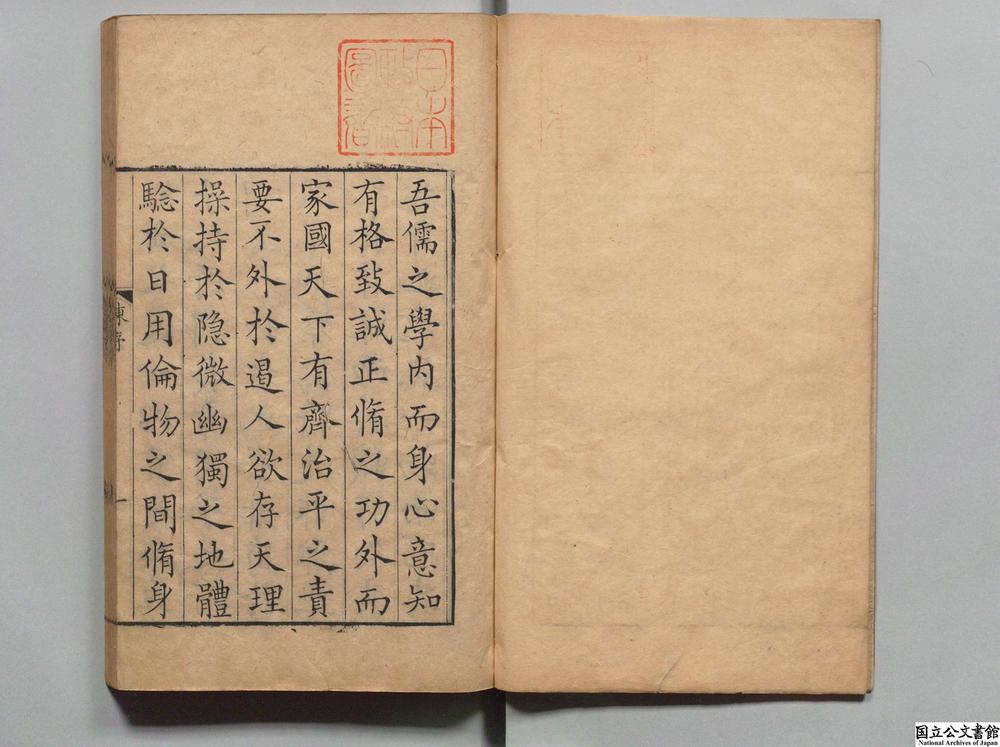 吾儒之學內而身心意知
有格致誠正脩之功外而
家國天下有齊治平之責
要不外於遏人欲存天理
操持於隐微幽獨之地體
騐於日用倫物之間脩身
東序
一
日本
政府
圖書
国立公文書館
National Archives of Japan